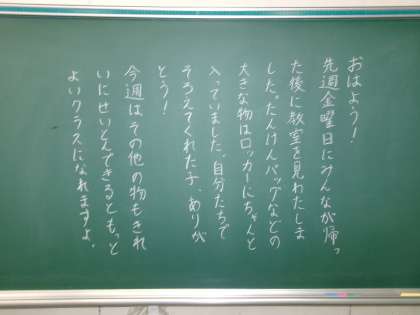 おはよう！
先週金曜日にみんなが帰っ
た後に教室を見わたしま
した。たんけんバッグなどの
大きな物はロッカーにちゃんと
入っていました。自分たちで
そろえてくれた子、ありが
とう！
今週は、その他の物もきれ
いにせいとんできるともっと
よいクラスになれますよ。